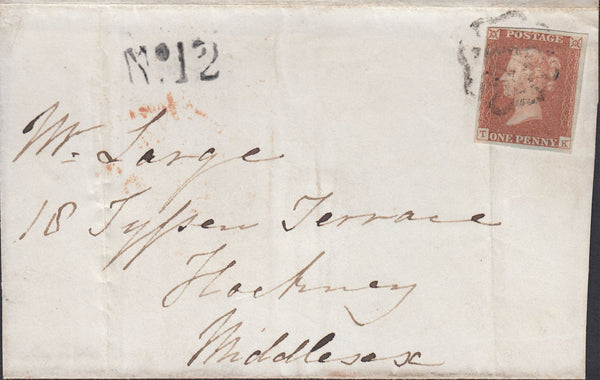 POSTAGE
No. 12
T K
ONE PENNY
Mr. Large
18 Tyssen Terrace
Hackney
Middlesex